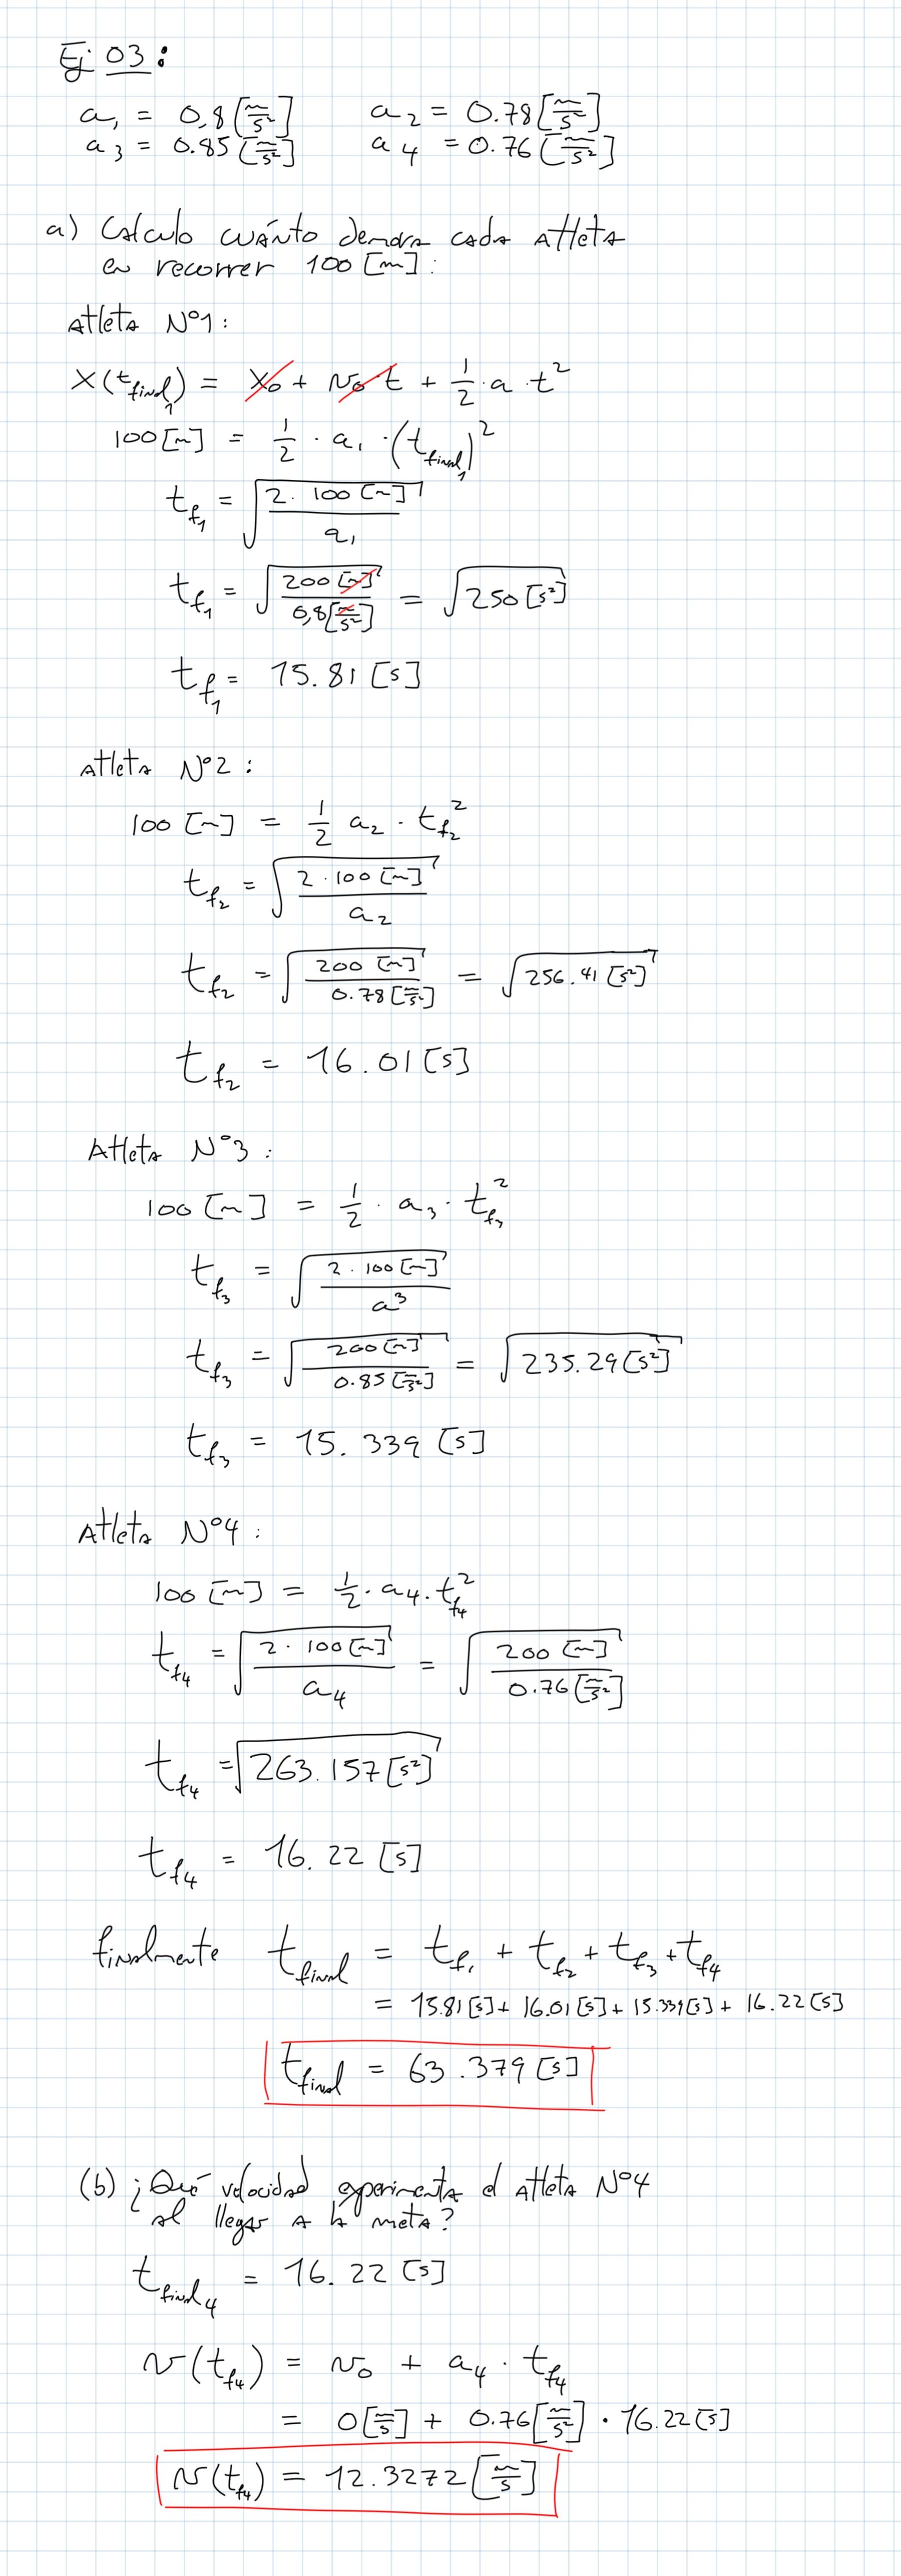 Ej 03:
a₁ = 0,8 [m/s²]    a₂ = 0.78 [m/s²]
a₃ = 0.85 [m/s²]    a₄ = 0.76 [m/s²]
a) Calculo cuánto demora cada atleta
en recorrer 100 [m]:
Atleta Nº1:
X(t_final₁) = X₀ + v₀ t + 1/2 · a · t²
100 [m] = 1/2 · a₁ · (t_final₁)²
t_f₁ = √(2 · 100 [m] / a₁)
t_f₁ = √(200 [m] / 0,8 [m/s²]) = √(250 [s²])
t_f₁ = 15.81 [s]
Atleta Nº2:
100 [m] = 1/2 a₂ · t_f₂²
t_f₂ = √(2 · 100 [m] / a₂)
t_f₂ = √(200 [m] / 0.78 [m/s²]) = √(256.41 [s²])
t_f₂ = 16.01 [s]
Atleta Nº3:
100 [m] = 1/2 · a₃ · t_f₃²
t_f₃ = √(2 · 100 [m] / a³)
t_f₃ = √(200 [m] / 0.85 [m/s²]) = √(235.29 [s²])
t_f₃ = 15.339 [s]
Atleta Nº4:
100 [m] = 1/2 · a₄ · t_f₄²
t_f₄ = √(2 · 100 [m] / a₄) = √(200 [m] / 0.76 [m/s²])
t_f₄ = √(263.157 [s²])
t_f₄ = 16.22 [s]
finalmente t_final = t_f₁ + t_f₂ + t_f₃ + t_f₄
= 15.81 [s] + 16.01 [s] + 15.339 [s] + 16.22 [s]
t_final = 63.379 [s]
(b) ¿Qué velocidad experimenta el atleta Nº4
al llegar a la meta?
t_final₄ = 16.22 [s]
v(t_f₄) = v₀ + a₄ · t_f₄
= 0 [m/s] + 0.76 [m/s²] · 16.22 [s]
v(t_f₄) = 12.3272 [m/s]